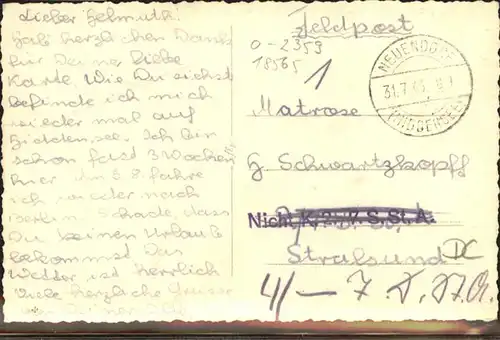 Lieber Helmuth!
Hab herzlichen Dank
für Deine liebe
Karte. Wie Du siehst
befinde ich mich
wieder mal auf
Hiddensee. Ich bin
schon fast 3 Wochen
hier. Am 5.8. fahre
ich wieder nach
Berlin. Schade, dass
Du keinen Urlaub
bekommst. Das
Wetter ist herrlich
Viele herzliche Grüsse
von Deiner
Feldpost
0-2359
18565
1
NEUENDORF
31.7.43
(HIDDENSEE)
Matrose
H. Schwartzkopff
Nicht K. S. St. A.
Stralsund
4/ — 7.